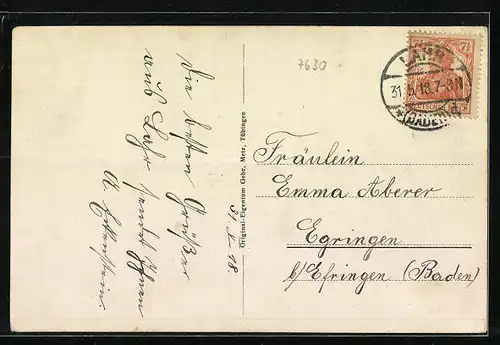 die besten Grüße
aus Lahr sendet Ihnen
A.
31. V. 18.
Original-Eigentum Gebr. Metz, Tübingen
7630
LAHR
31.5.18.7-8N
(BADEN)
7½
Fräulein
Emma Aberer
Egringen
b/Efringen (Baden)